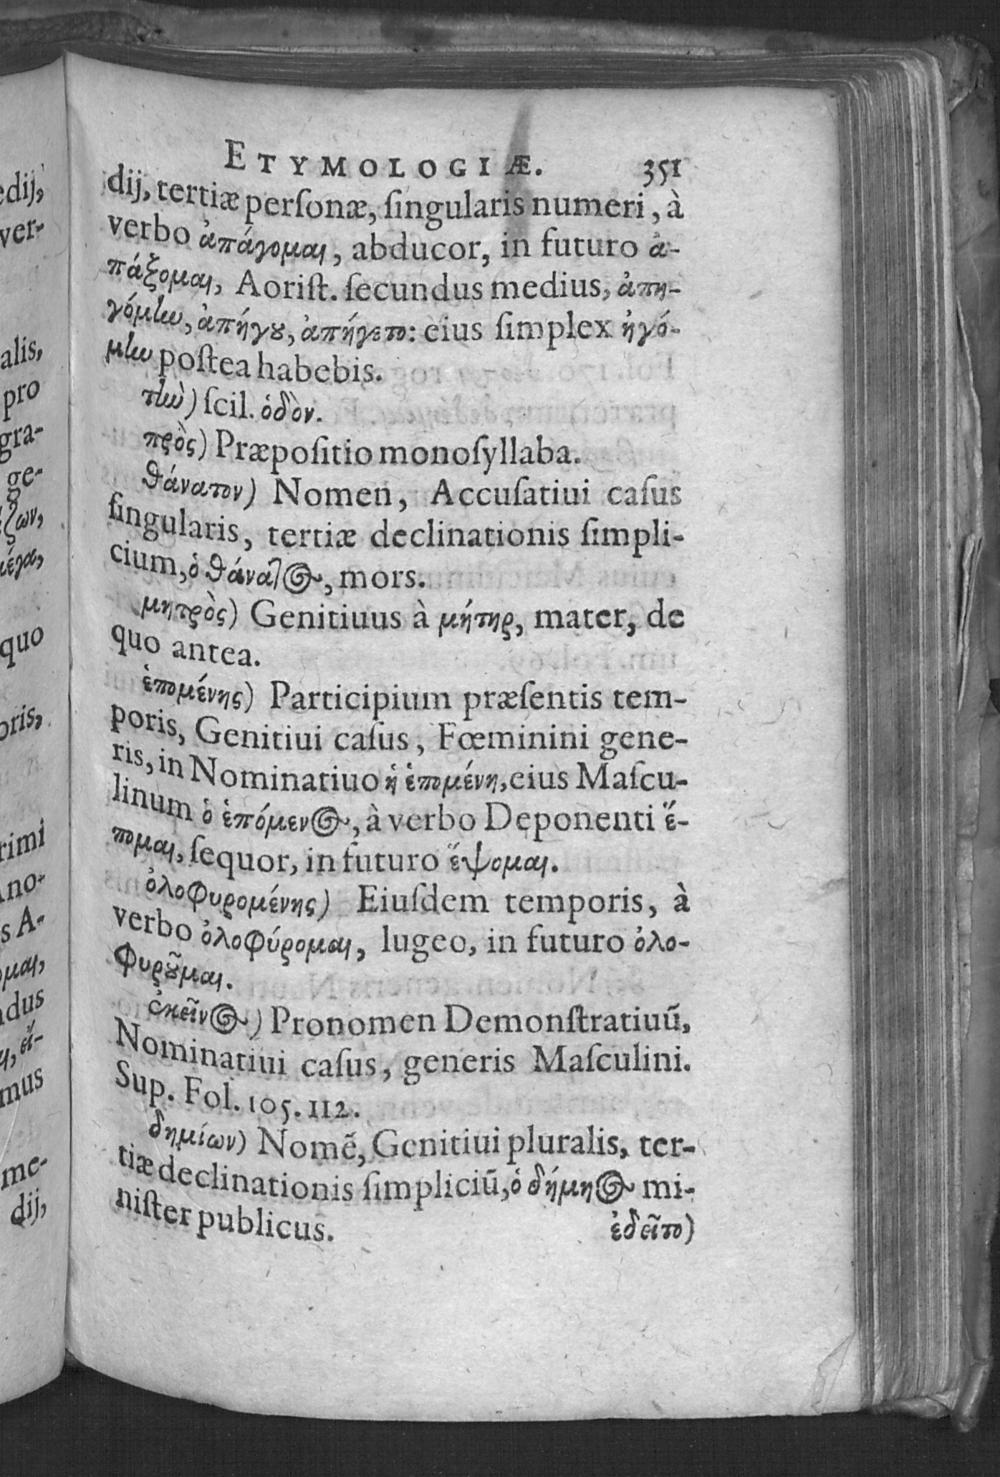 ETYMOLOGIÆ. 351
dij, tertiæ personæ, singularis numeri, à
verbo ἀπάγομαι, abducor, in futuro ἀ-
πάξομαι, Aorist. secundus medius, ἀπη-
γόμην, ἀπήγου, ἀπήγετο: eius simplex ἠγό-
μην postea habebis.
τὴν) scil. ὁδὸν.
πρὸς) Præpositio monosyllaba.
θάνατον) Nomen, Accusatiui casus
singularis, tertiæ declinationis simpli-
cium, ὁ θάνατος, mors.
μητρὸς) Genitiuus à μήτηρ, mater, de
quo antea.
ἑπομένης) Participium præsentis tem-
poris, Genitiui casus, Fœminini gene-
ris, in Nominatiuo ἡ ἑπομένη, eius Mascu-
linum ὁ ἑπόμενος, à verbo Deponenti ἕ-
πομαι, sequor, in futuro ἕψομαι.
ὀλοφυρομένης) Eiusdem temporis, à
verbo ὀλοφύρομαι, lugeo, in futuro ὀλο-
φυροῦμαι.
ἐκεῖνος) Pronomen Demonstratiuũ,
Nominatiui casus, generis Masculini.
Sup. Fol. 105. 112.
δημίων) Nomẽ, Genitiui pluralis, ter-
tiæ declinationis simpliciũ, ὁ δήμηος mi-
nister publicus.
ἐδεῖτο)
edij,
ver-
alis,
pro
gra-
ge-
ζων,
μέγα,
quo
oris,
rimi
Ano-
s A-
ομαι,
ndus
εἵ-
mus
me-
dij,